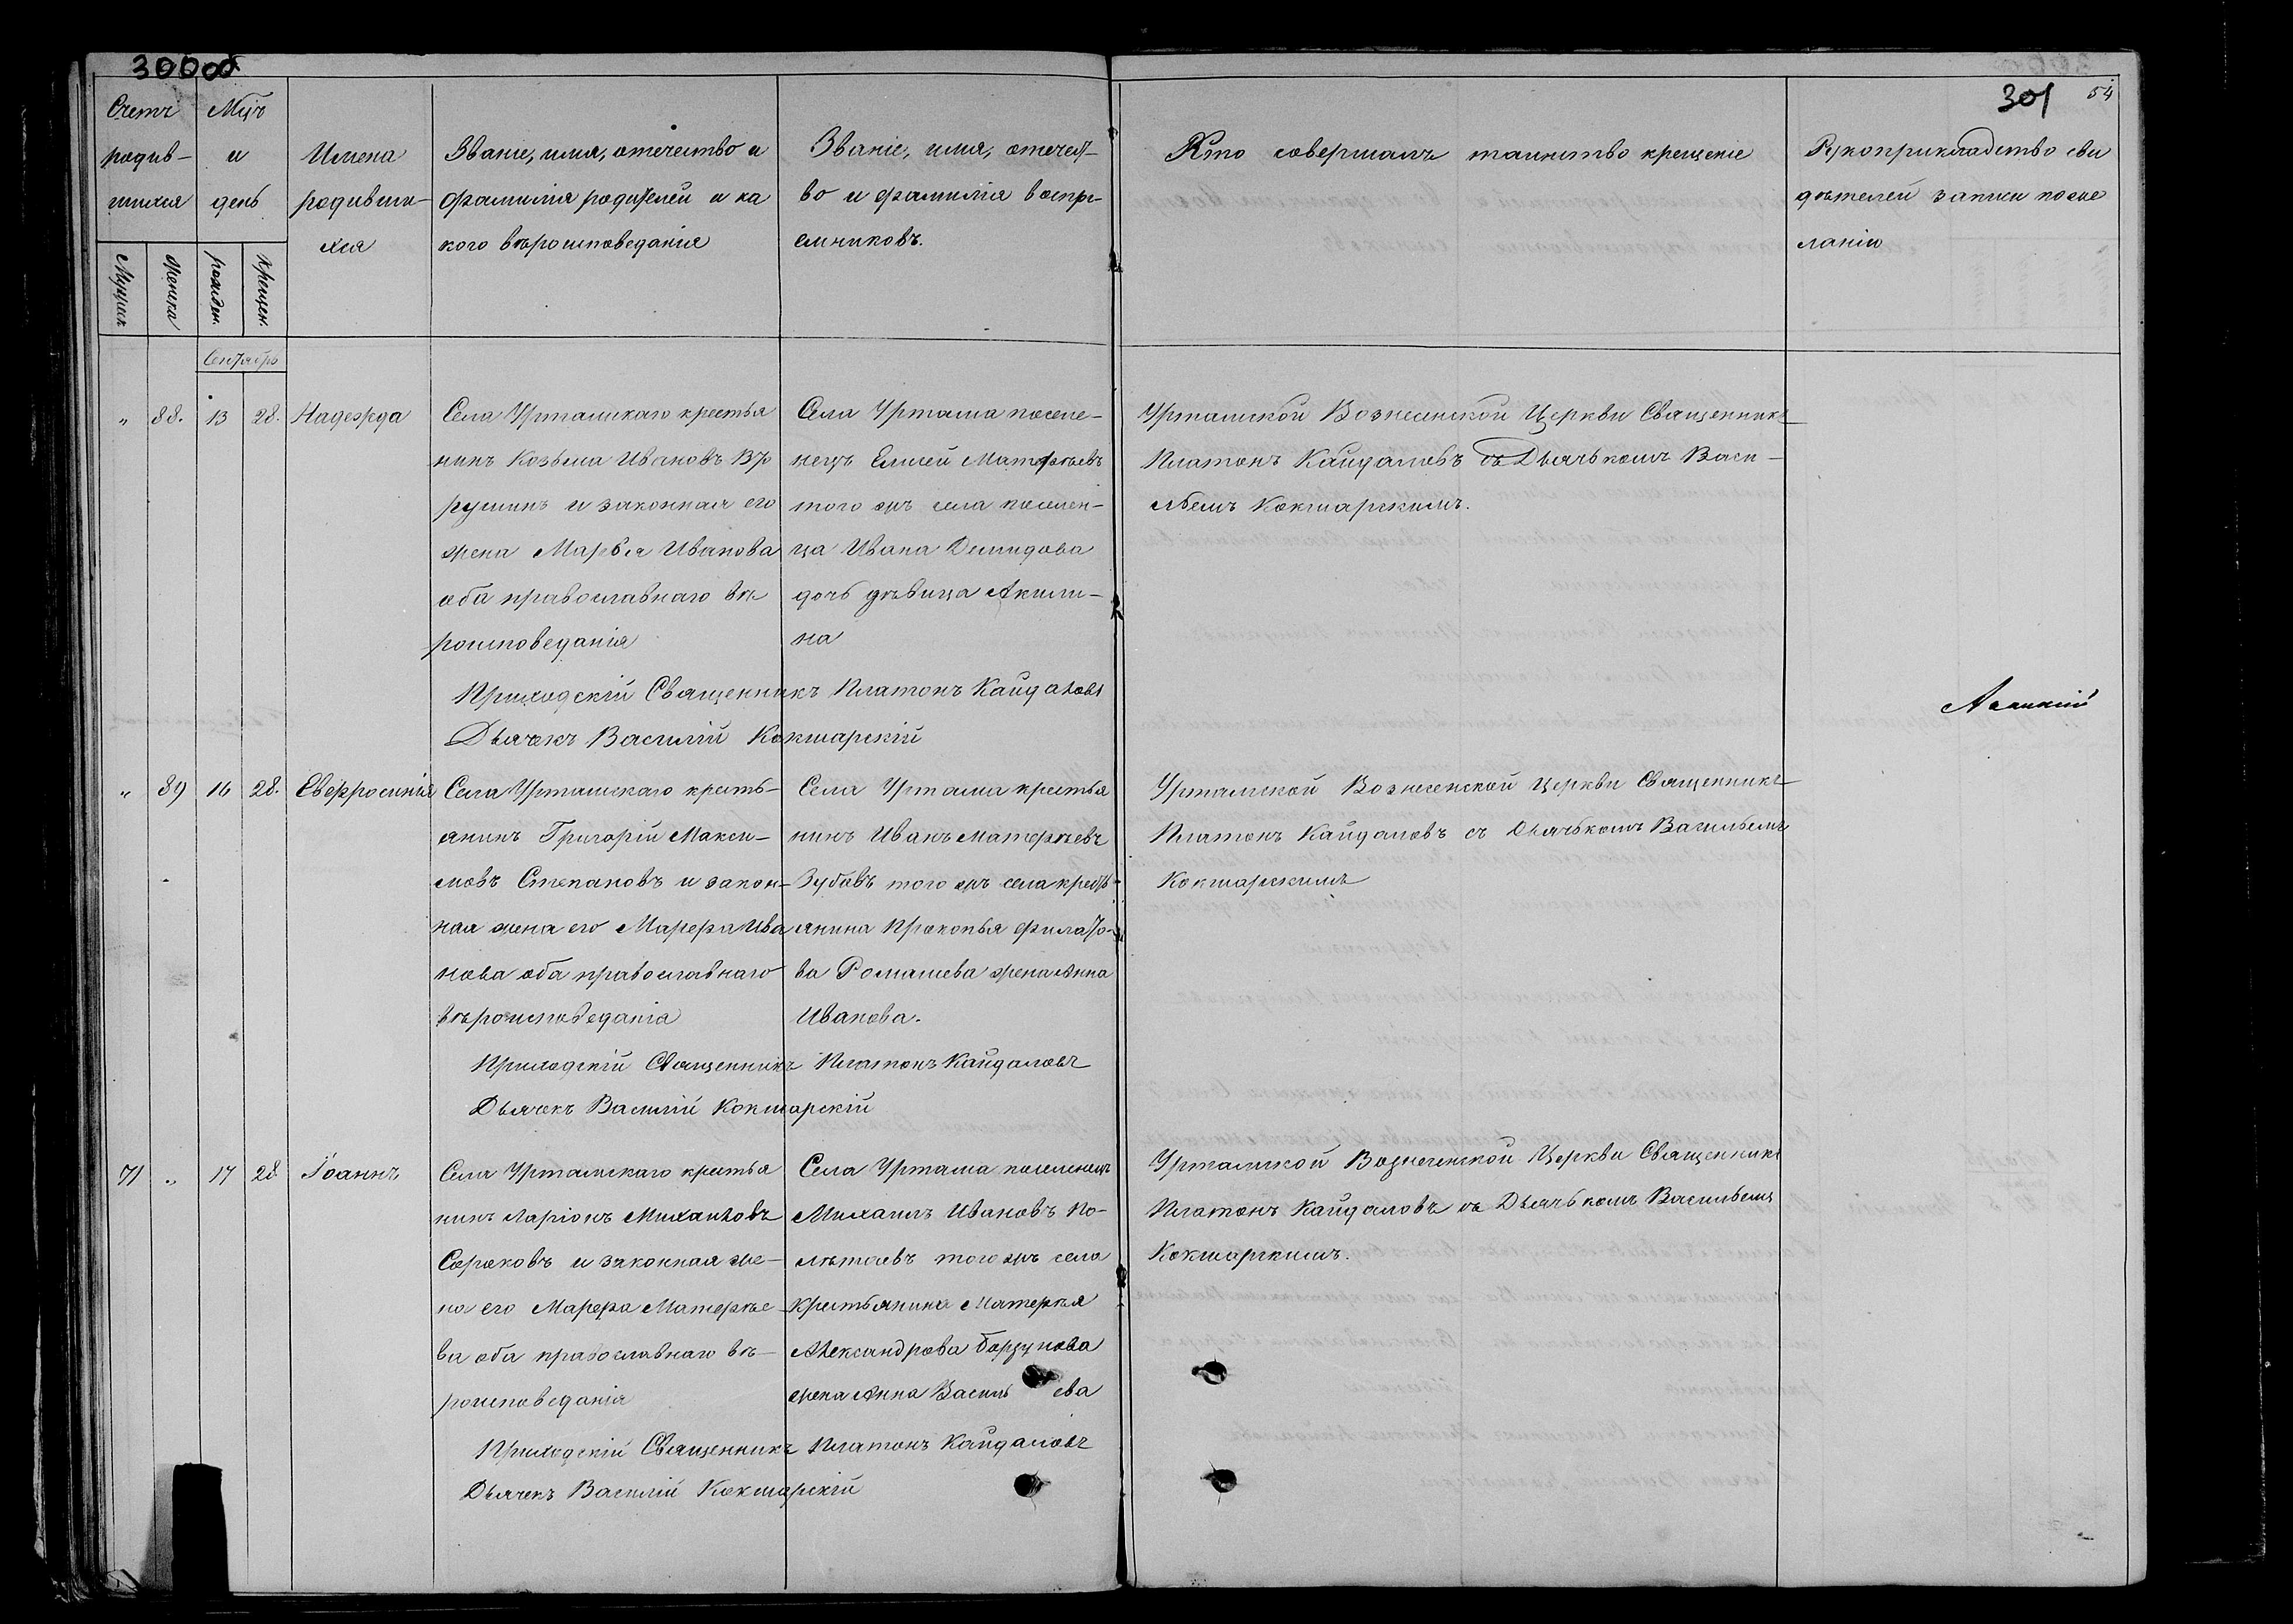 300об
301
54
Счетъ
родив-
шихся
Мужеск
женска
Мцъ
и
день
рожден.
крещен.
Имена
родивши-
хся
Званіе, имя, отечество и
фамилія родителей и ка
кого вѣроисповеданія
Званіе, имя, отечест-
во и фамилія воспрі-
емниковъ.
Кто совершалъ таинство крещеніе
Рукоприкладство сви
дѣтелей записи по же
ланію
Сентябрь
" 88. 13 28. Надежда
Села Уртамскаго крестья
нинъ Козьма Ивановъ
и законная его
жена Марья Иванова
оба православнаго вѣ
роисповеданія
Села Уртама поселе-
нецъ Елисей Матфѣевъ
того жъ села поселен-
ца Ивана Демидова
дочь дѣвица Акили-
на
Уртамской Вознесенской Церкви Священникъ
Платонъ Кайдаловъ съ Дьячькомъ Васи-
льемъ Кокшарскимъ.
Приходскій Священникъ Платонъ Кайдаловъ
Дьячекъ Василій Кокшарскій
" 89 16 28. Евфросинія
Села Уртамскаго кресть-
янинъ Григорій Макси-
мовъ Степановъ и закон-
ная жена его Марфа Ива
нова оба православнаго
вѣроисповеданія
Села Уртама крестья
нинъ Иванъ Матфѣевъ
Зубовъ того жъ села кресть-
янина Прокопья Филато-
ва Ромашева жена Анна
Иванова.
Уртамской Вознесенской Церкви Священникъ
Платонъ Кайдаловъ съ Дьячькомъ Васильемъ
Кокшарскимъ
Приходскій Священникъ Платонъ Кайдаловъ
Дьячекъ Василій Кокшарскій
71 " 17 28 Іоаннъ
Села Уртамскаго крестья
нинъ Ларіонъ Михаиловъ
Сороковъ и законная же-
на его Марфа Матфѣе-
ва оба православнаго вѣ-
роисповеданія
Села Уртама поселенецъ
Михаилъ Ивановъ По-
лѣтаевъ того жъ села
крестьянина Матфѣя
Александрова Борзунова
жена Анна Василь ева
Уртамской Вознесенской Церкви Священникъ
Платонъ Кайдаловъ съ Дьячькомъ Васильемъ
Кокшарскимъ.
Приходскій Священникъ Платонъ Кайдаловъ
Дьячекъ Василій Кокшарскій